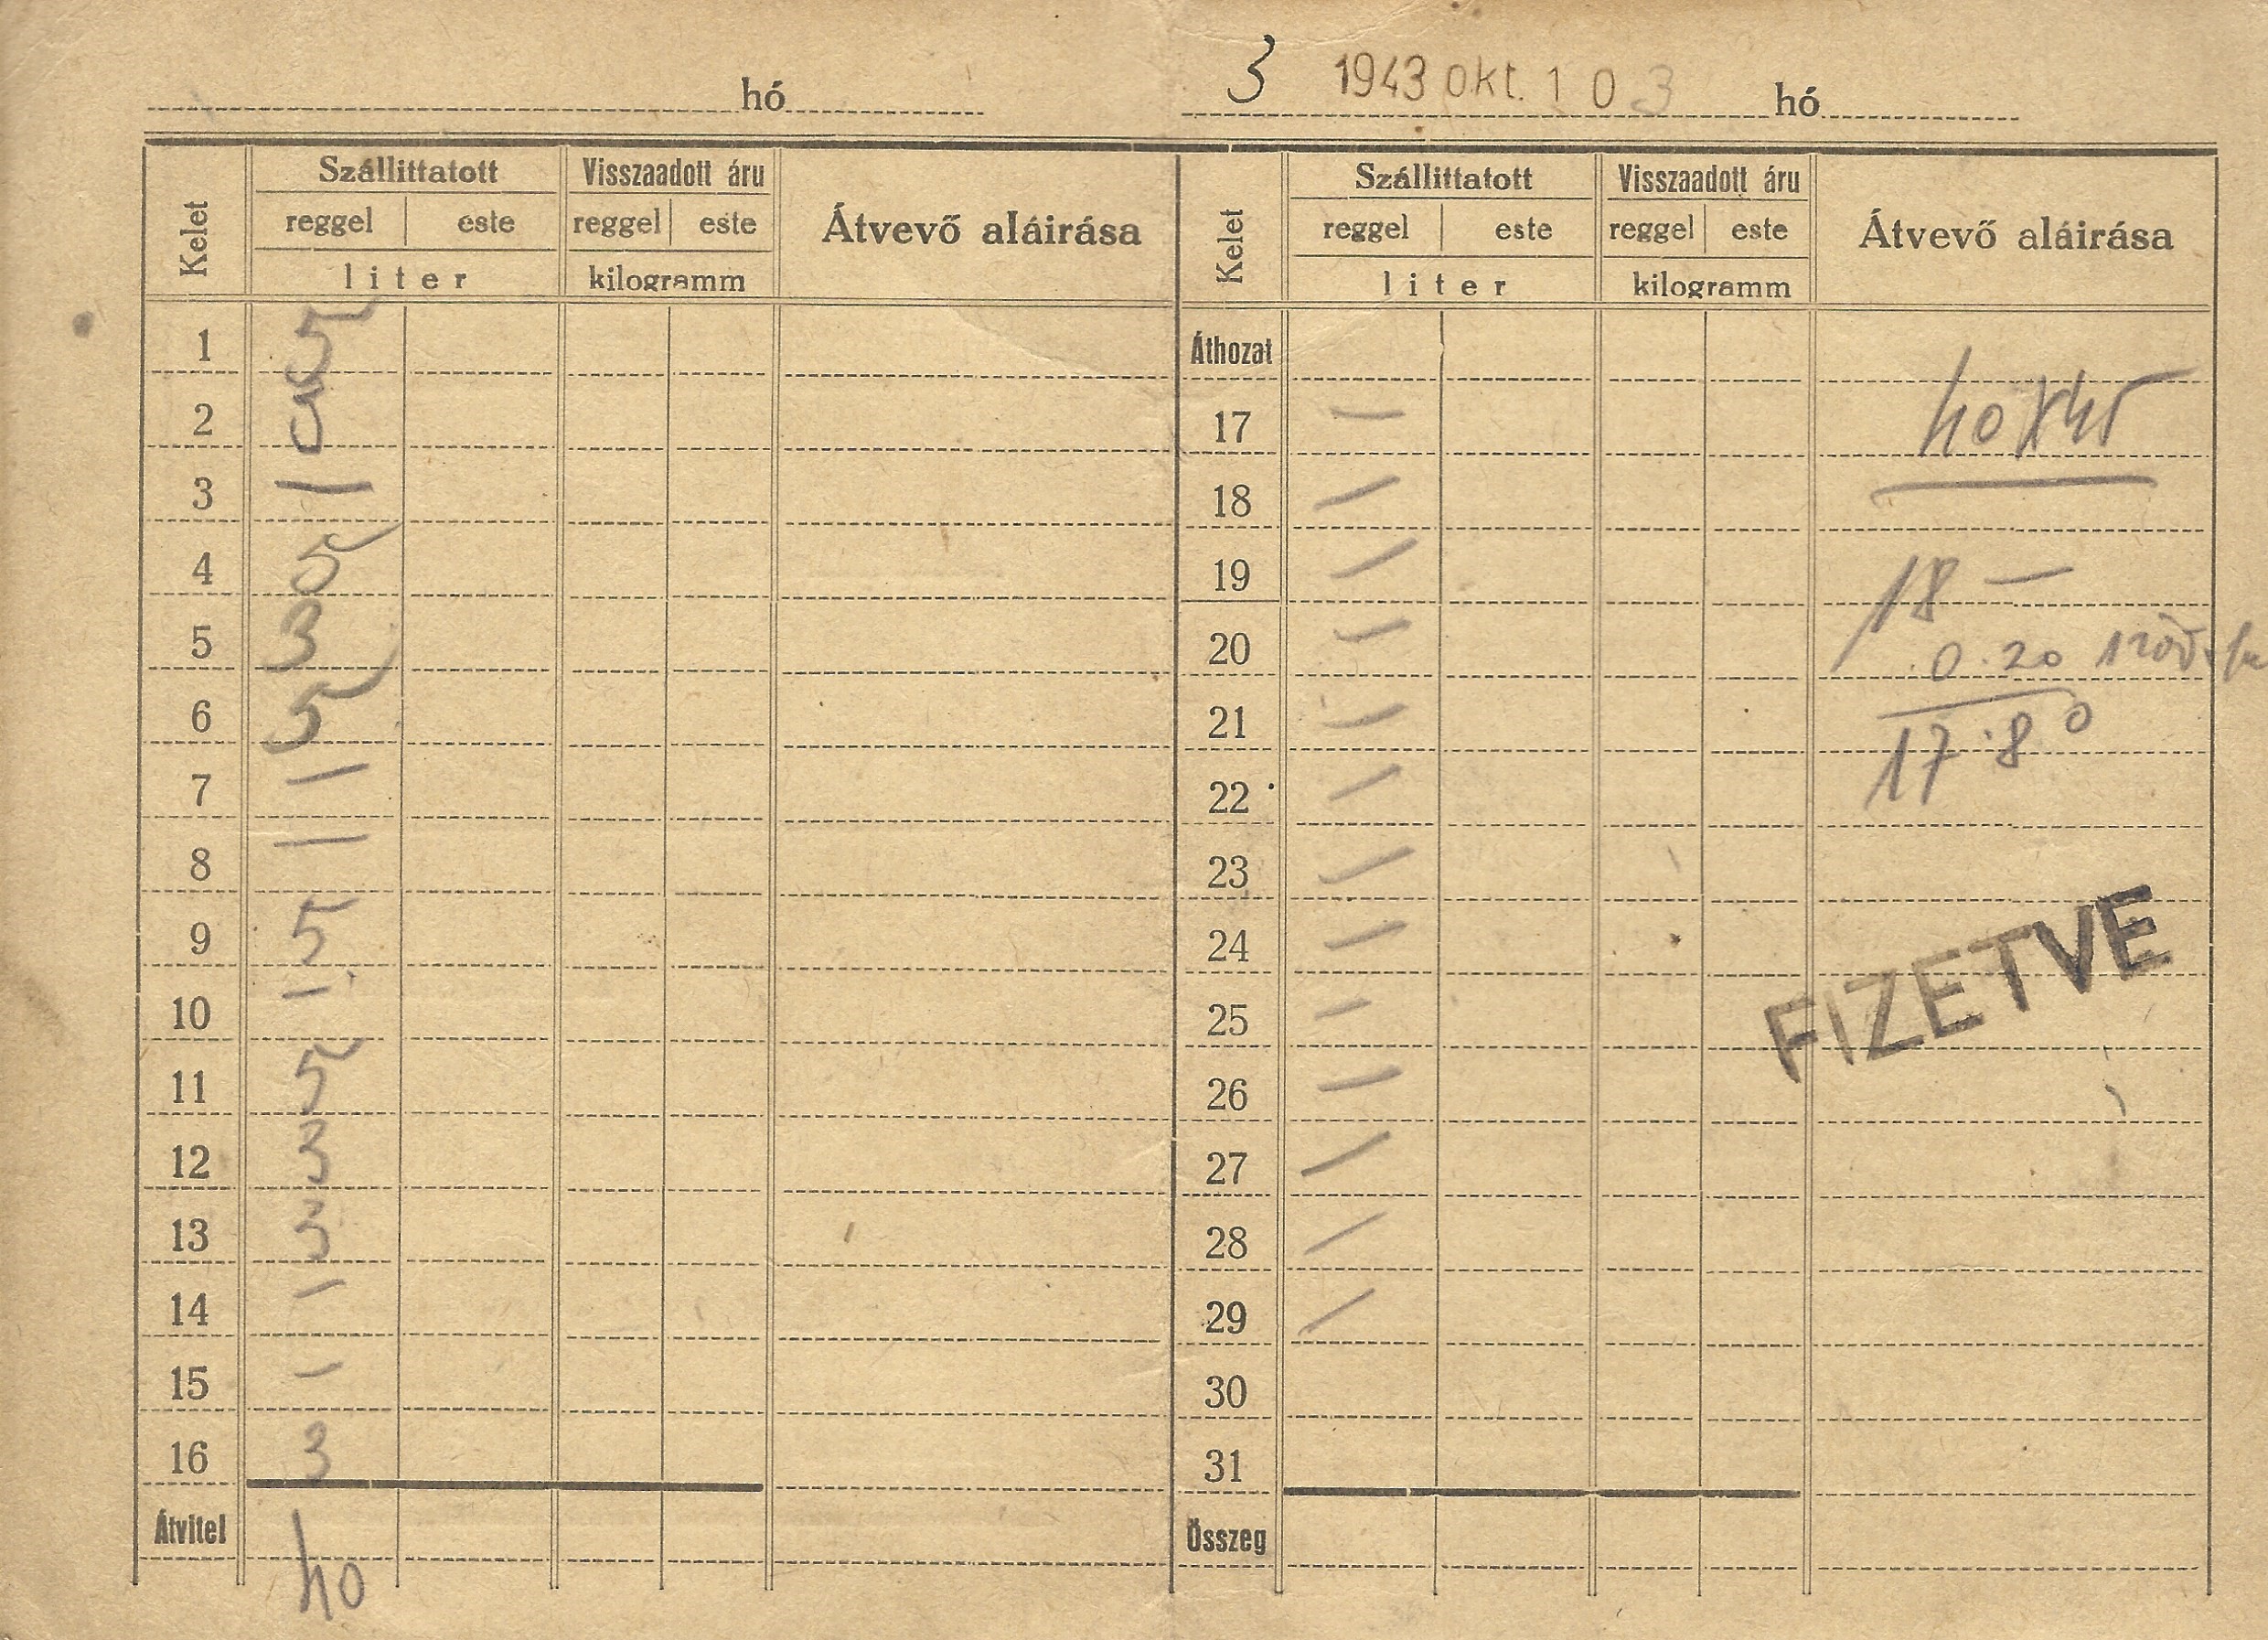 hó
3 1943 okt. 1 0 3 hó
Kelet Szállittatott Visszaadott áru Átvevő aláirása
reggel este reggel este
liter kilogramm
1 5
2 3
3 —
4 5
5 3
6 5
7 —
8 —
9 5
10 —
11 5
12 3
13 3
14 —
15 —
16 3
Átvitel 40
Kelet Szállittatott Visszaadott áru Átvevő aláirása
reggel este reggel este
liter kilogramm
Áthozat
17 — 40 X 45
18 —
19 — 18 —
20 — 0.20
21 — 17.80
22 —
23 —
24 —
25 —
FIZETVE
26 —
27 —
28 —
29 —
30
31
Összeg